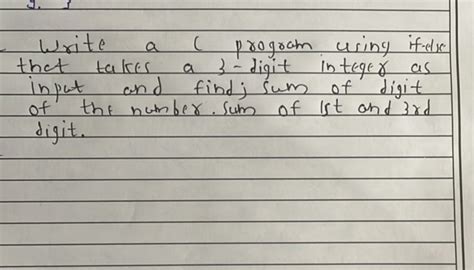 Write a C program using if-else
that takes a 3-digit integer as
input and find; sum of digit
of the number. sum of 1st and 3rd
digit.